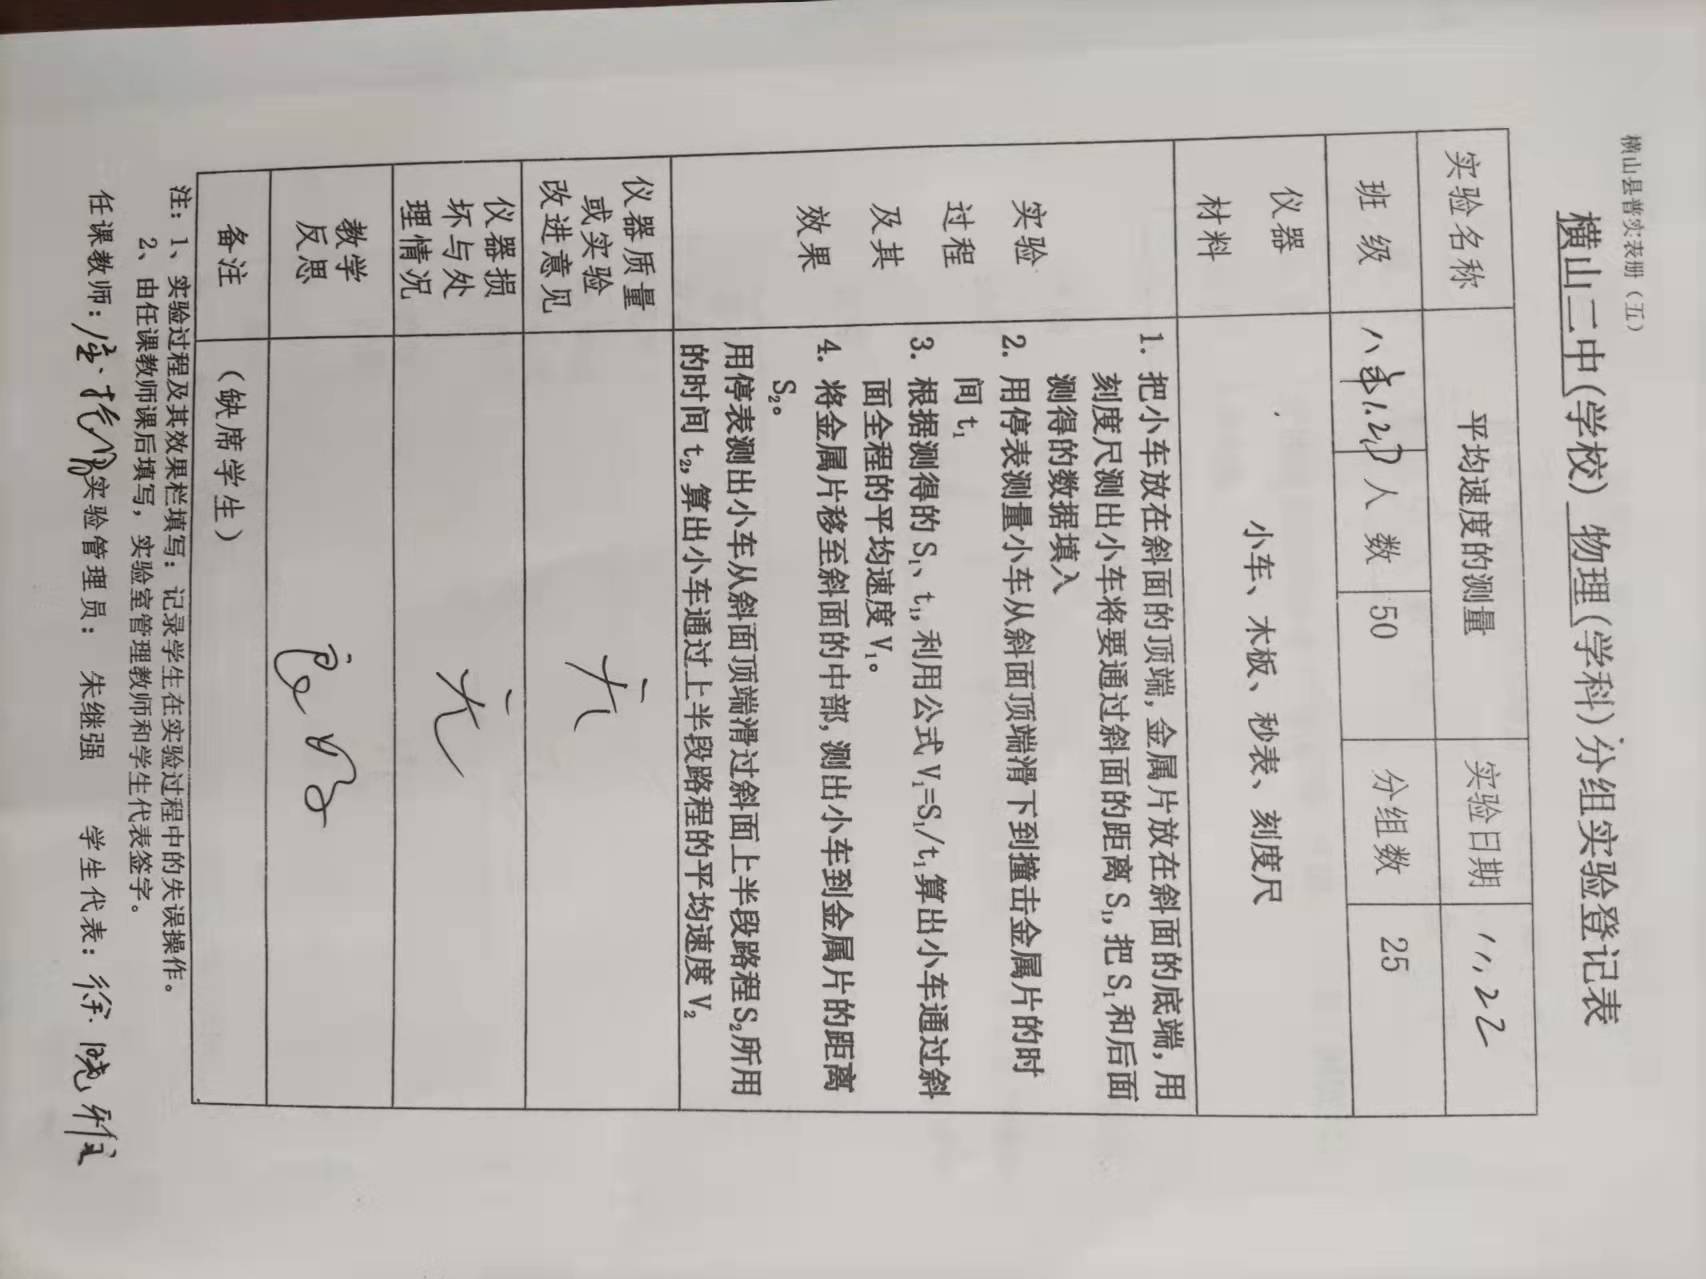 横山县普实表册（五）
横山二中(学校) 物理(学科)分组实验登记表
实验名称 平均速度的测量 实验日期 11.22
班级 人数 50 分组数 25
仪器
材料
小车、木板、秒表、刻度尺
实验
过程
及其
效果
1. 把小车放在斜面的顶端,金属片放在斜面的底端,用
刻度尺测出小车将要通过斜面的距离S₁,把S₁和后面
测得的数据填入
2. 用停表测量小车从斜面顶端滑下到撞击金属片的时
间t₁
3. 根据测得的S₁、t₁,利用公式V₁=S₁/t₁算出小车通过斜
面全程的平均速度V₁。
4. 将金属片移至斜面的中部,测出小车到金属片的距离
S₂。
用停表测出小车从斜面顶端滑过斜面上半段路程S₂所用
的时间t₂,算出小车通过上半段路程的平均速度V₂
仪器质量
或实验
改进意见
无
仪器损
坏与处
理情况
无
教学
反思
良好
备注
（缺席学生）
注：1、实验过程及其效果栏填写：记录学生在实验过程中的失误操作。
2、由任课教师课后填写，实验室管理教师和学生代表签字。
任课教师： 实验管理员：朱继强 学生代表：徐晓雅